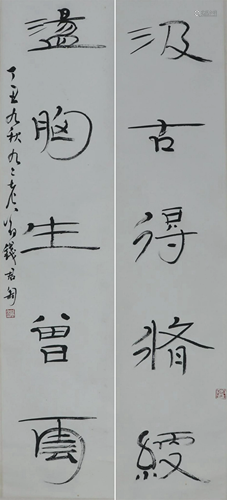 汲古得脩綆
盪胸生曾雲
丁丑九秋九二老人豫堂錢君匋